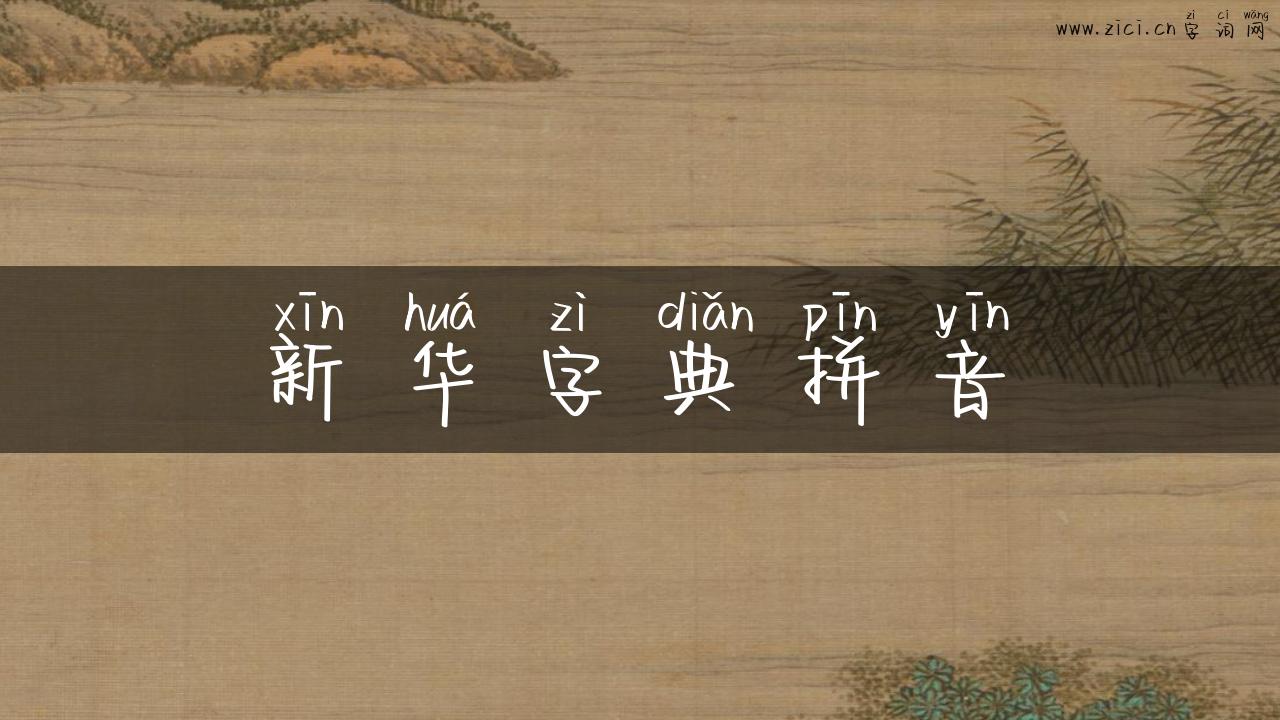 zì cí wǎng
www.zici.cn字词网
xīn huá zì diǎn pīn yīn
新华字典拼音